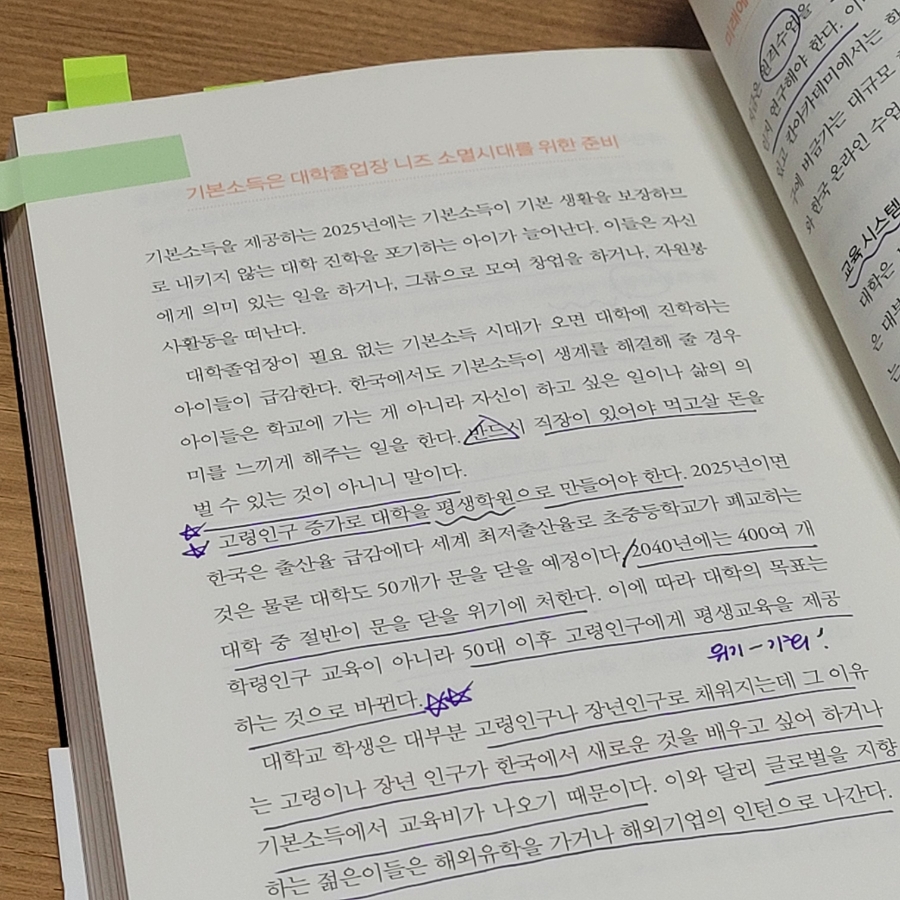 기본소득은 대학졸업장 니즈 소멸시대를 위한 준비
기본소득을 제공하는 2025년에는 기본소득이 기본 생활을 보장하므
로 내키지 않는 대학 진학을 포기하는 아이가 늘어난다. 이들은 자신
에게 의미 있는 일을 하거나, 그룹으로 모여 창업을 하거나, 자원봉
사활동을 떠난다.
대학졸업장이 필요 없는 기본소득 시대가 오면 대학에 진학하는
아이들이 급감한다. 한국에서도 기본소득이 생계를 해결해 줄 경우
아이들은 학교에 가는 게 아니라 자신이 하고 싶은 일이나 삶의 의
미를 느끼게 해주는 일을 한다. 반드시 직장이 있어야 먹고살 돈을
벌 수 있는 것이 아니니 말이다.
고령인구 증가로 대학을 평생학원으로 만들어야 한다. 2025년이면
한국은 출산율 급감에다 세계 최저출산율로 초중등학교가 폐교하는
것은 물론 대학도 50개가 문을 닫을 예정이다. 2040년에는 400여 개
대학 중 절반이 문을 닫을 위기에 처한다. 이에 따라 대학의 목표는
학령인구 교육이 아니라 50대 이후 고령인구에게 평생교육을 제공
하는 것으로 바뀐다.
위기 – 기회!
대학교 학생은 대부분 고령인구나 장년인구로 채워지는데 그 이유
는 고령이나 장년 인구가 한국에서 새로운 것을 배우고 싶어 하거나
기본소득에서 교육비가 나오기 때문이다. 이와 달리 글로벌을 지향
하는 젊은이들은 해외유학을 가거나 해외기업의 인턴으로 나간다.
미래에
원리수업을
연구해야 한다.
칸아카데미에서는
비금가는 대규모
한국 온라인 수업
교육 시스템
대학은